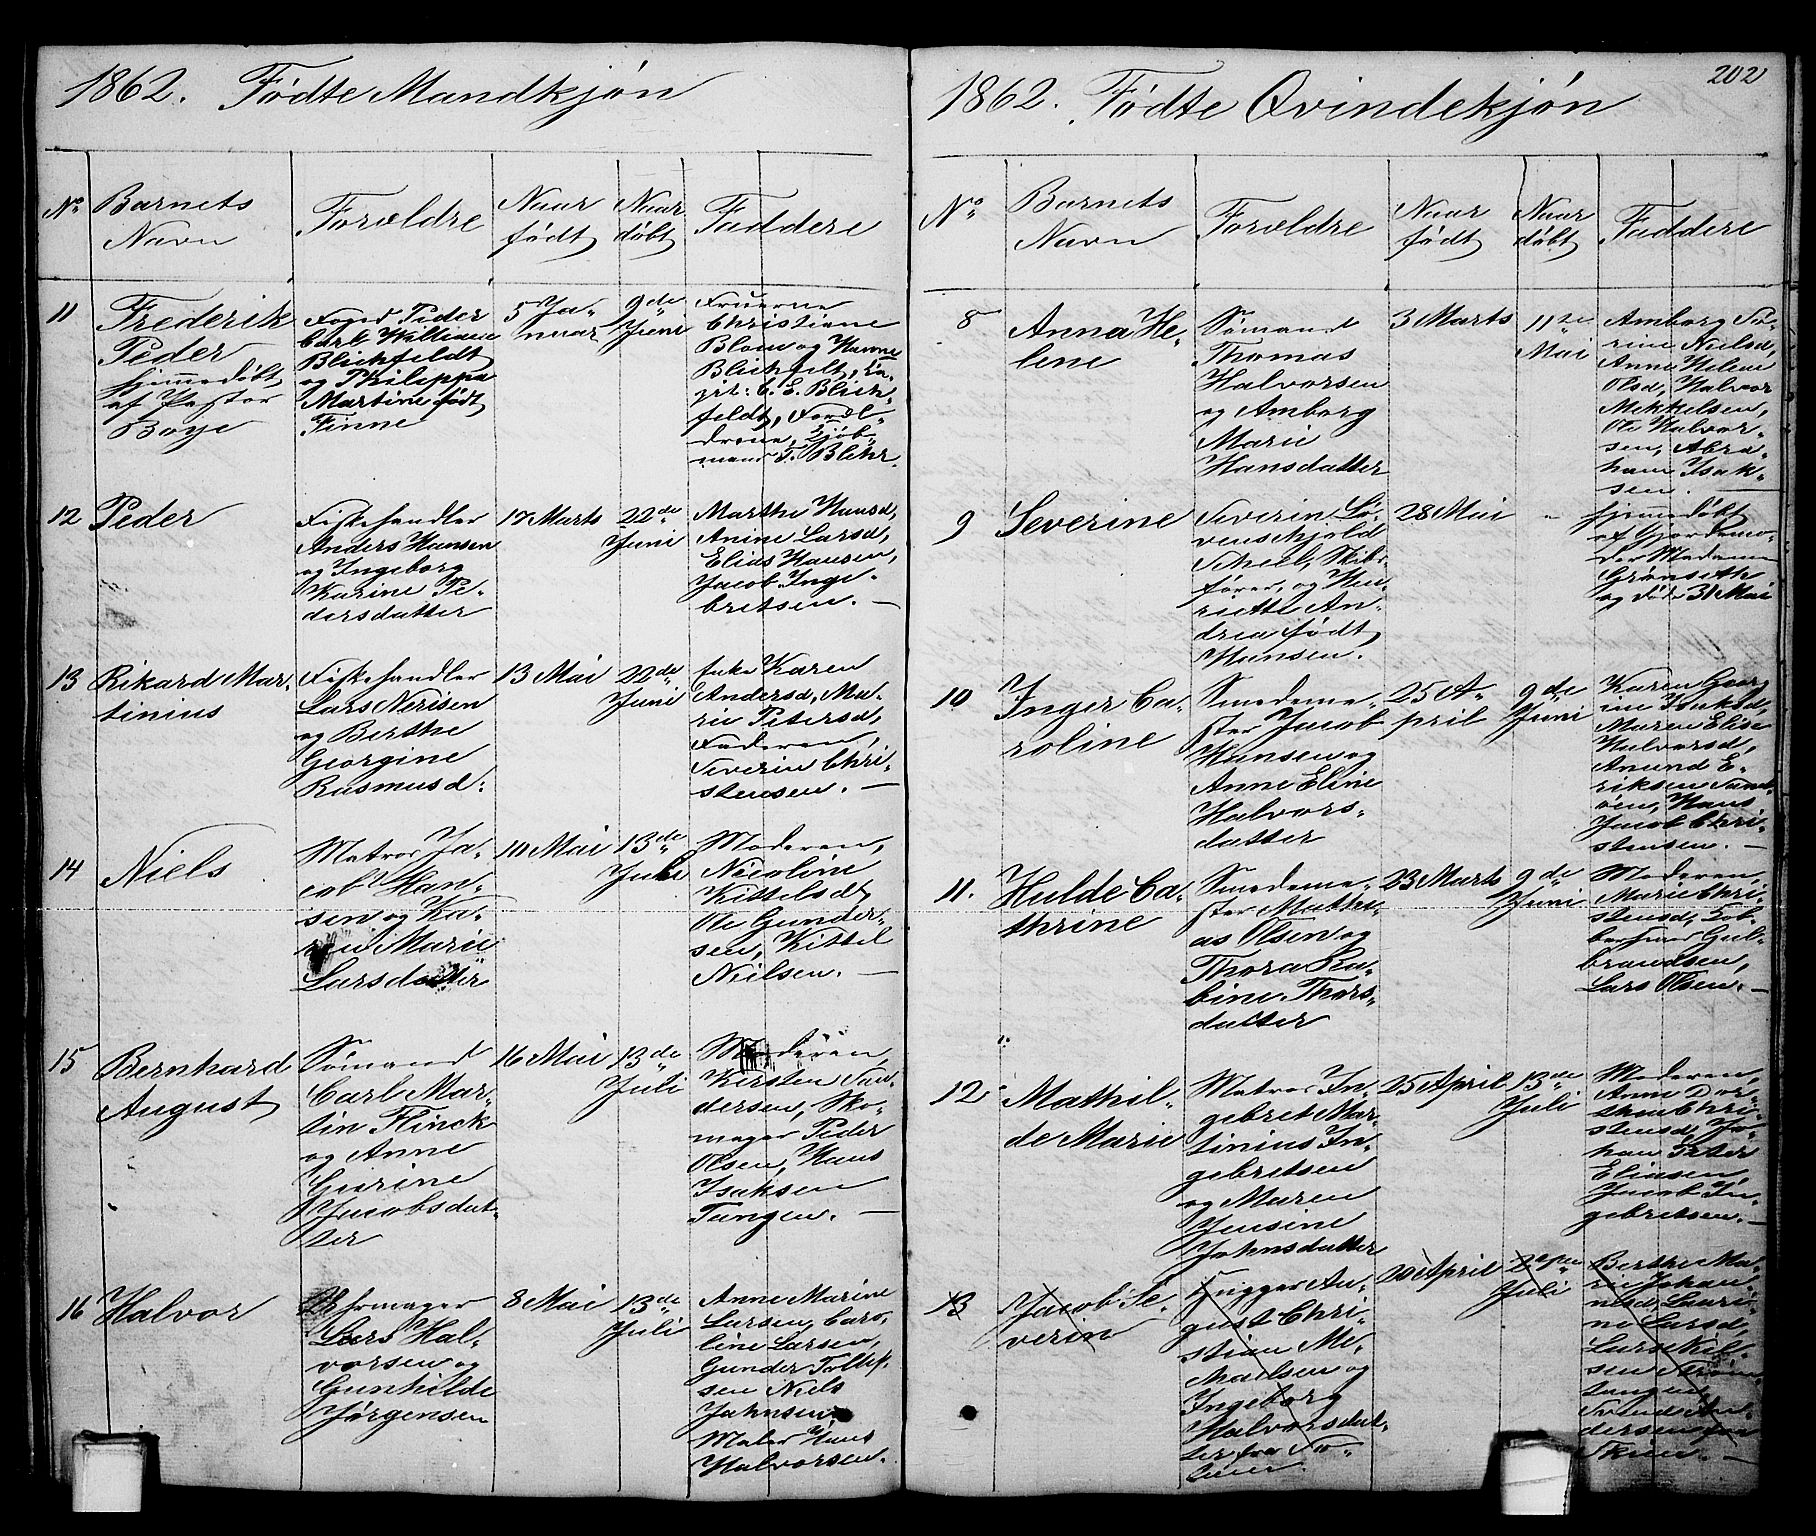 1862. Födte Mandkjön
No Barnets Navn
Forældre
Naar födt
Naar döbt
Faddere
11
Frederik
Peder
hjemmedöbt
af Pastor
Boye
Foged Peder
Carl William
Blichfeldt
og Philippa
Martine födt
Finne
5 Ja-
nuar
9de
Juni
Fruerne
Christiane
Blom og Hanne
Blichfelt, Ca-
pit: C. E. Blich-
feldt,
12 Peder
Fiskehandler
Anders Hansen
og Ingeborg
Karine Pe-
dersdatter
17 Marts
22de
Juni
Marthe Hansd,
Anine Larsd,
Elias Hansen,
Jacob Inge-
britsen. —
13 Rikard Mar-
tinius
Fiskehandler
Lars Nerisen
og Birthe
Georgine
Rasmusd:
13 Mai
22de
Juni
Karen
Andersd, Ma-
rie Petersd,
Faderen,
Severin Chri-
stensen. —
14 Niels
Matros Ja-
cob Han-
sen og Ka-
ren Marie
Larsdatter
10 Mai
13de
Juli
Moderen,
Nicoline
Kittelsd,
Ole Gunder-
sen, Kittel
Nielsen. —
15 Bernhard
August
Sömand
Carl Mar-
tin Flinck
og Anne
Gurine
Jacobsdat-
ter
16 Mai
13de
Juli
Moderen,
Kirsten An-
dersen, Sko-
mager Peder
Olsen, Hans
Isaksen
Tangen. —
16 Halvor
Uhrmager
Lars Hal-
vorsen og
Gunhilde
Jörgensen
8 Mai
13de
Juli
Anne Marine
Larsen, Caro-
line Larsen,
Gunder Tollef-
sen Niels
Jahnsen
Maler Hans
Halvorsen.
1862. Födte Qvindekjön
202
No Barnets Navn
Forældre
Naar födt
Naar döbt
Faddere
8
Anna He-
lene
Sömand
Thomas
Halvorsen
og Amborg
Marie
Hansdatter
3 Marts
11te
Mai
Amborg Sö-
rine Nielsd,
Anne Helene
Olsd, Halvor
Mikkelsen,
Ole Halvor-
sen, Abra-
ham Isak-
sen. —
9 Severine
Severin Lö-
venskjold
Skibs-
förer, og Hen-
riette An-
drea födt
Hansen.
28 Mai
hjemmedöbt
af Gjordemo-
der Madame
Grönseth
og döde 31 Mai
10 Inger Ca-
roline
Smedeme-
ster Jacob
Hansen og
Anne Eline
Halvors-
datter
25 A-
pril
9de
Juni
Karen Georg
ine Isaksd,
Maren Elise
Halvorsd,
Anund E-
riksen Sand-
öen, Hans
Jacob Chri-
stensen. —
11. Hulde Ca-
thrine
Smedeme-
ster Mathi-
as Olsen og
Thora Ra-
bine Thors-
datter
23 Marts
9de
Juni
Moderen
Marie Chri-
stensd,
Gul-
brandsen,
Lars Olsen. —
12 Mathil-
de Marie
Matros In-
gebret Mar-
tinius In-
gebretsen
og Maren
Jensine
Jahnsdatter
25 April
13de
Juli
Moderen,
Anne Dor-
thea Chri-
stensd, Jo-
han Peter
Eliasen,
Jacob In-
gebretsen. —
13 Jacob Se-
verin
Hugger Au-
gust Chri-
stian Mi-
kaelsen og
Ingeborg
Halvorsdat-
ter fra
20 April
Juli
Berthe Ma-
rie Johan-
nesd, Lauri-
ne Larsd,
Lars Niel-
sen Ström-
tangen,
Svends An-
dersen fra
Skien. —